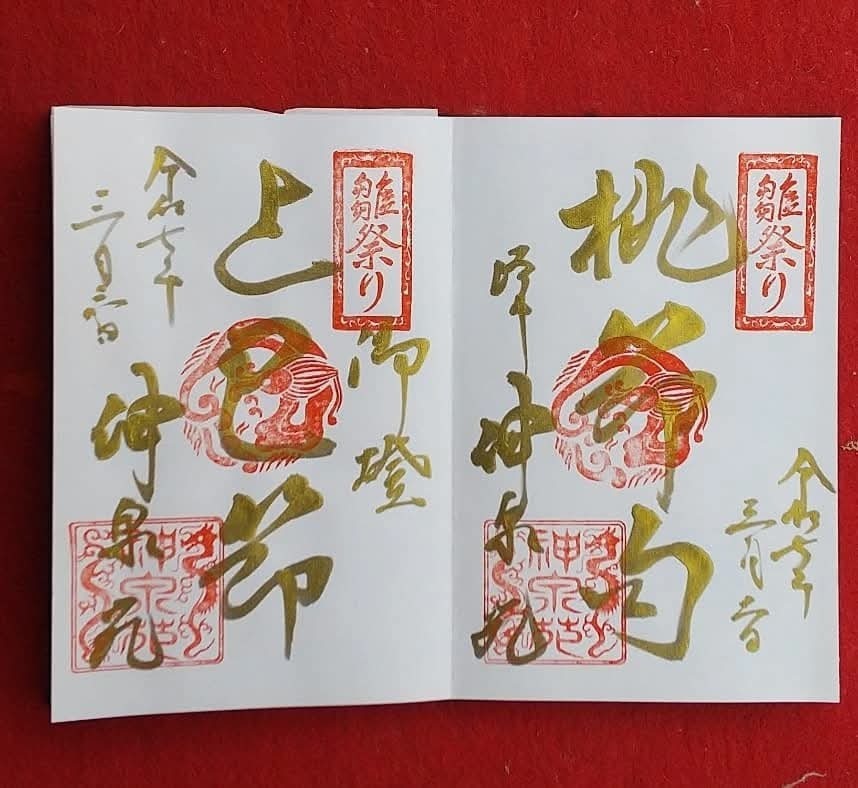 雛祭り
桃節句
神泉苑
令和七年
三月
雛祭り
御燈
上巳節
神泉苑
令和七年
三月
神泉苑
神泉苑